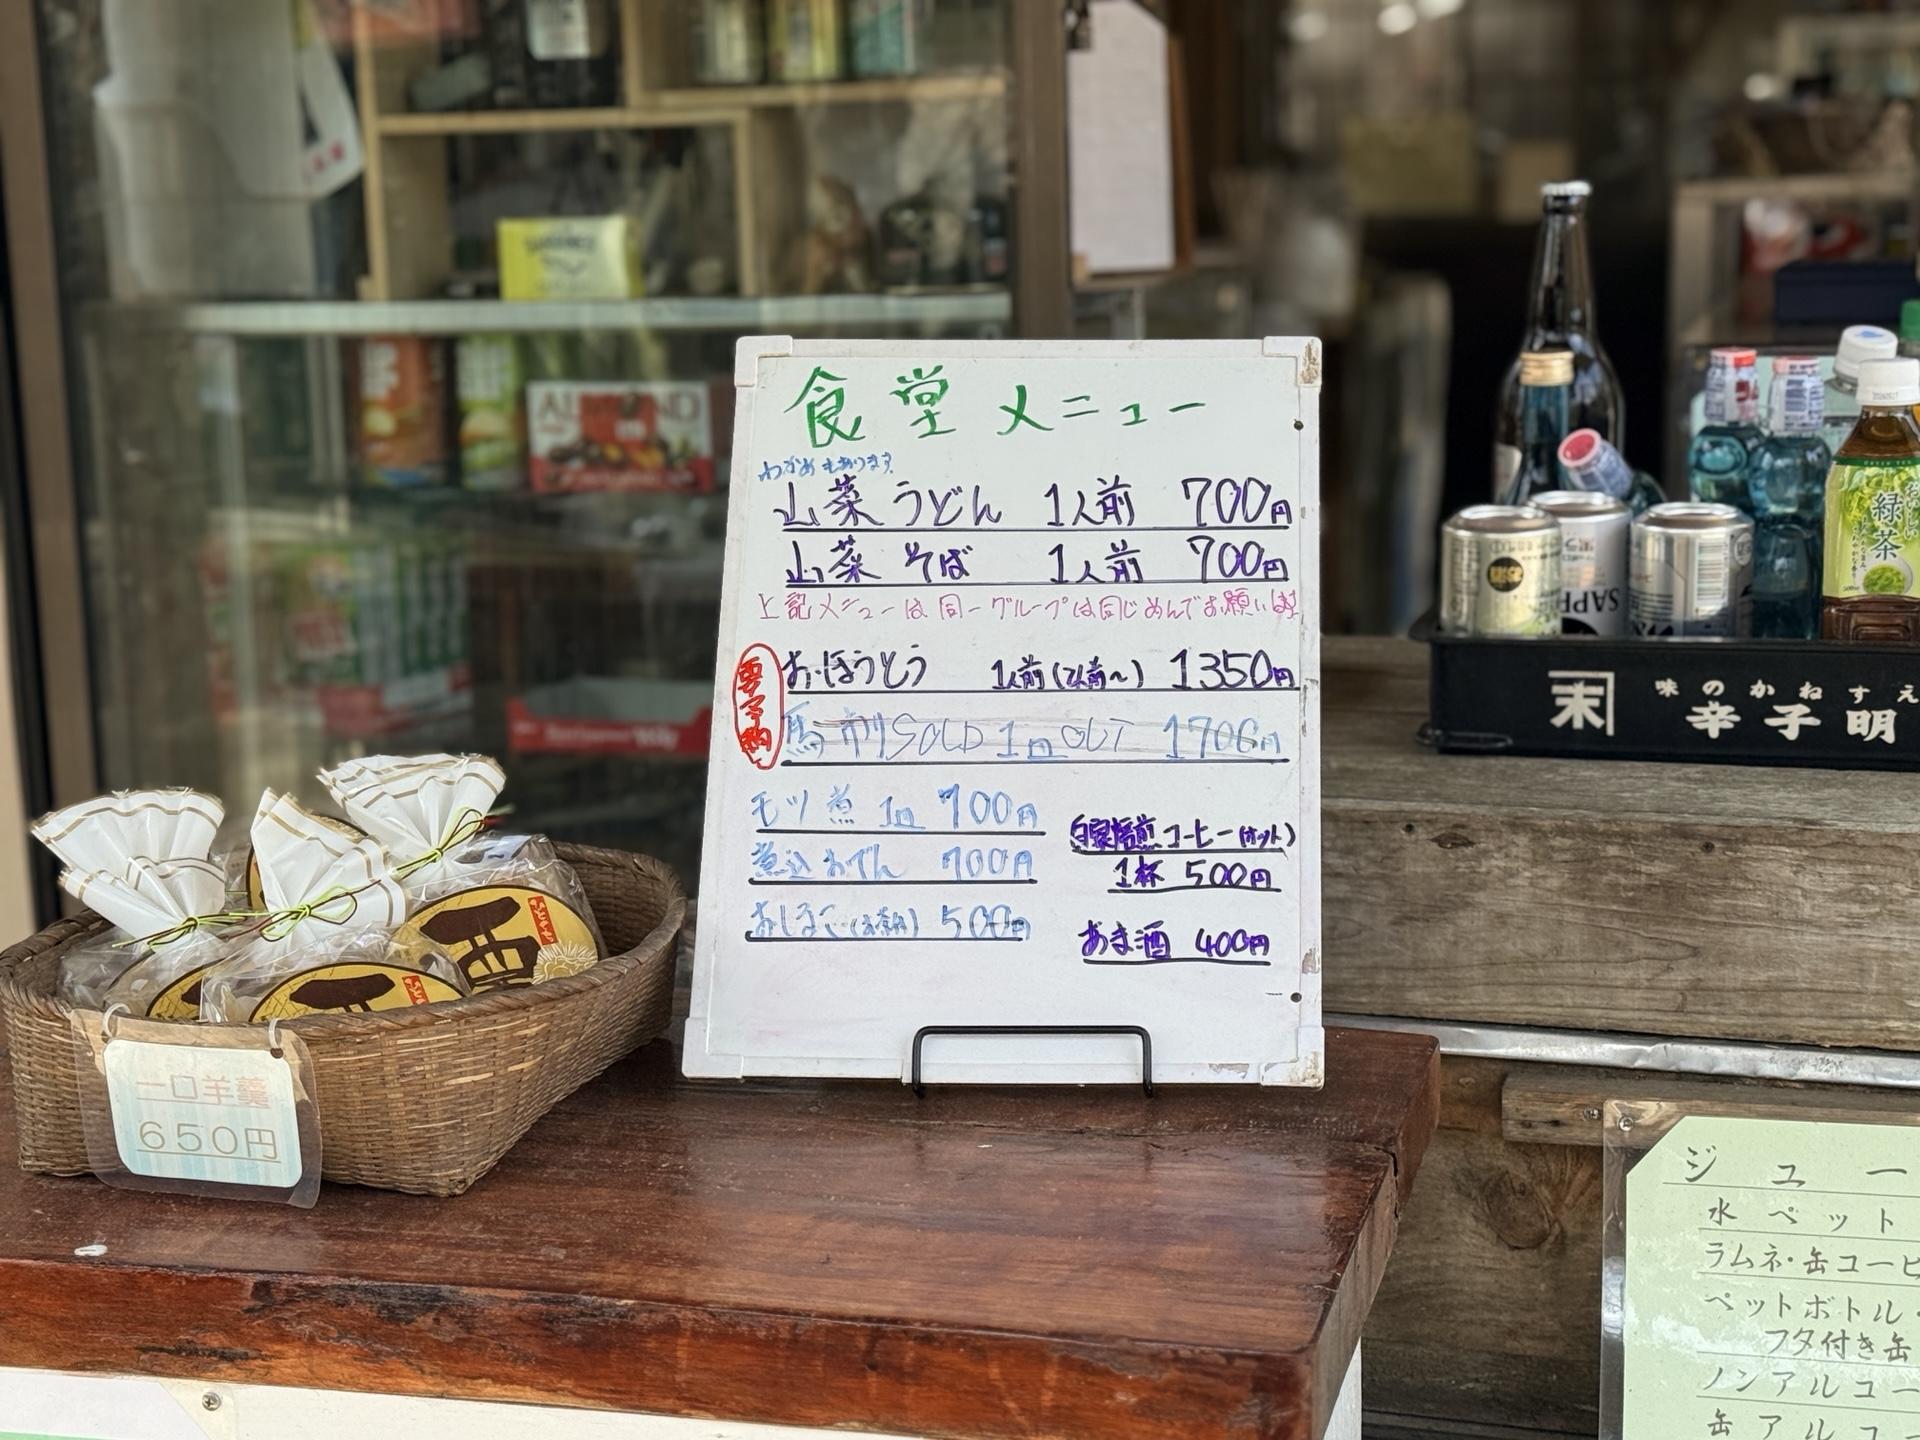 食堂メニュー
わかめもあります
山菜うどん 1人前 700円
山菜そば 1人前 700円
上記メニューは同一グループは同じめんでお願いします
要予約
おほうとう 1人前(2人前〜) 1350円
馬刺 SOLD 1皿 OUT 1700円
モツ煮 1皿 700円
煮込おでん 700円
おしるこ 500円
自家焙煎コーヒー(ホット)
1杯 500円
あま酒 400円
一口羊羹
650円
ALMOND
SAPP
おいしい
緑茶
末
味のかねすえ
辛子明
ジュー
水ペット
ラムネ・缶コーヒ
ペットボトル・
フタ付き缶
ノンアルコー
缶アルコー